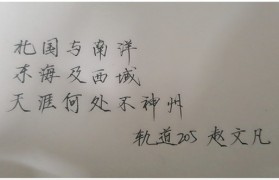 北国与南洋
东海及西域
天涯何处不神州
轨道205 赵文凡